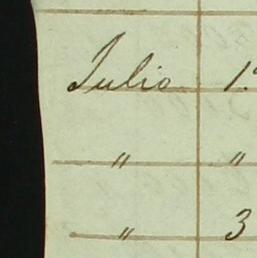 Julio 1.º
" "
" 3